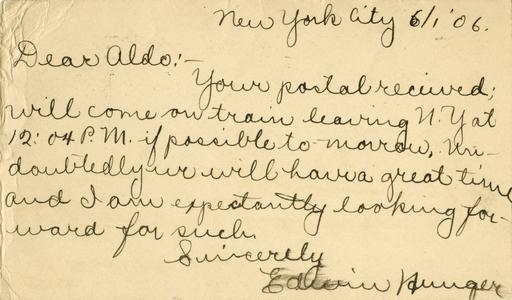 New York City 6/1 '06.
Dear Aldo:-
Your postal recieved;
will come on train leaving N.Y at
12:04 P.M. if possible to-morrow. Un-
doubtedly we will have a great time
and I am expectantly looking for-
ward for such.
Sincerely
Edwin Hunger